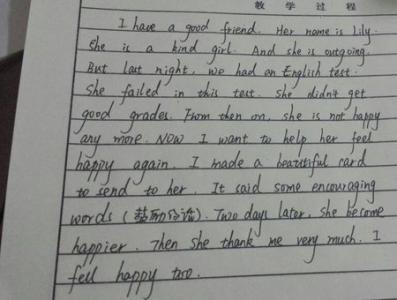 教 学 过 程
I have a good friend. Her name is Lily.
She is a kind girl. And she is outgoing.
But last night, we had an English test.
She failed in this test. She didn't get
good grades. From then on, she is not happy
any more. Now I want to help her feel
happy again. I made a beautiful card
to send to her. It said some encouraging
words (鼓励的话). Two days later, she become
happier. Then she thank me very much. I
feel happy too.